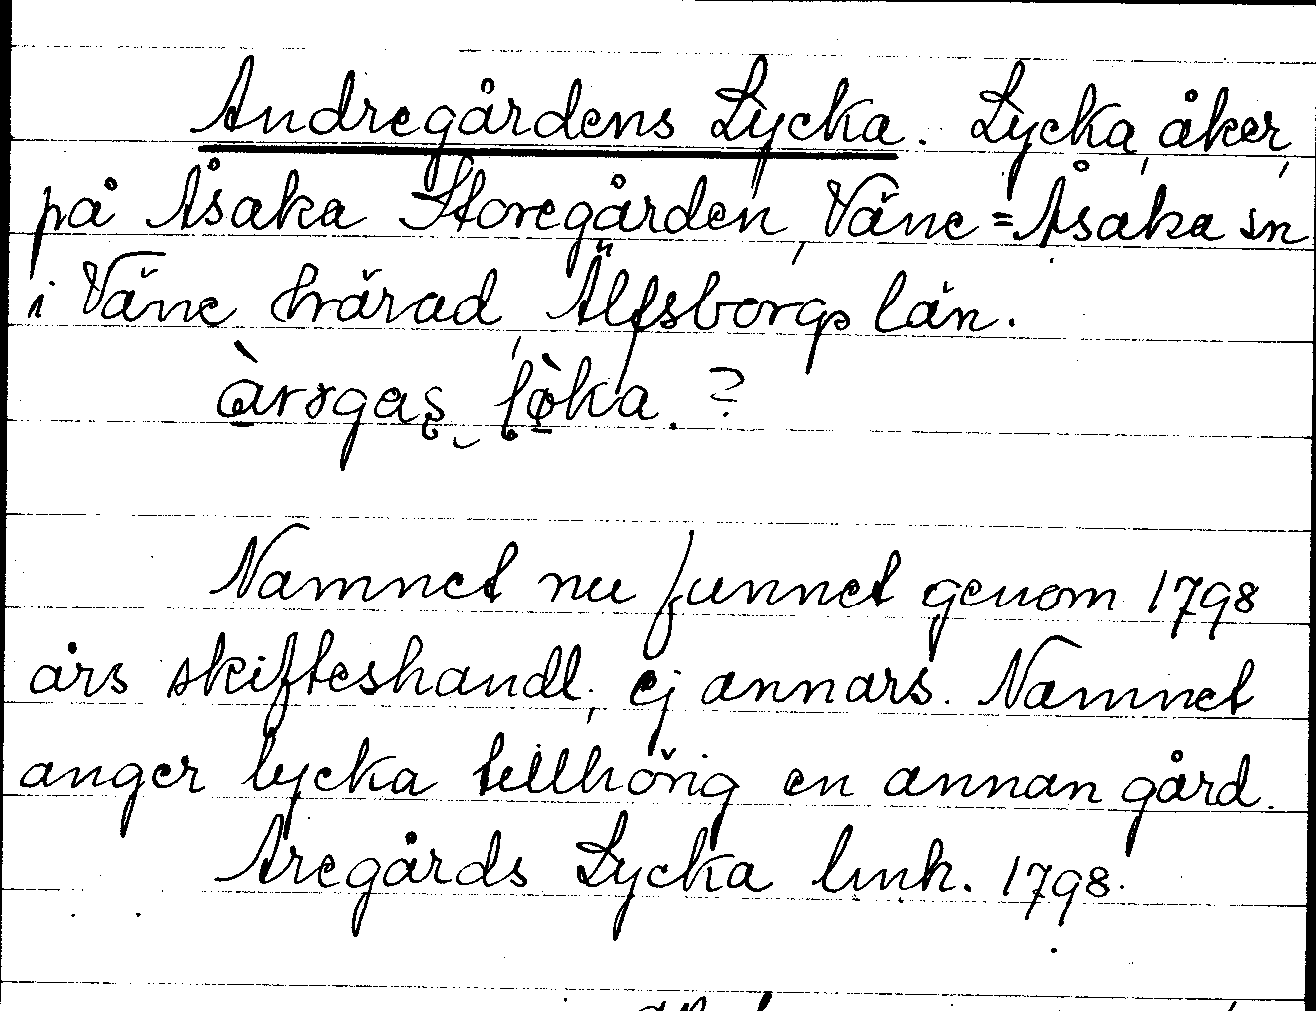 Andregårdens Lycka. Lycka, åker,
på Åsaka Storegården, Väne=Åsaka sn
i Väne härad, Älfsborgs län.
àrrgas lø̀ka. ?
Namnet nu funnet genom 1798
års skifteshandl., ej annars. Namnet
anger lycka tillhörig en annan gård.
Aregårds Lycka lmh. 1798.